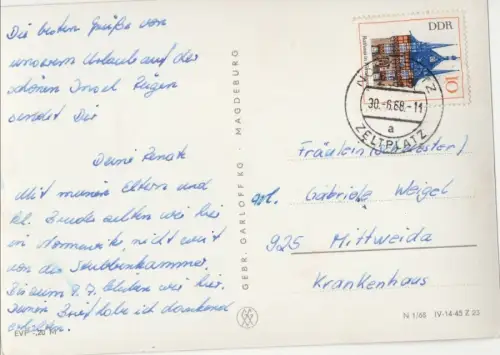 Die besten Grüße von
unserem Urlaub auf der
schönen Insel Rügen
sendet Dir
Deine Renate
Mit meinen Eltern und
kl. Bruder zelten wir hier
in Nonnewitz, nicht weit
von der Stubbenkammer.
Bis zum 8.7. bleiben wir hier.
Deinen Brief habe ich dankend
erhalten.
EVP -,20 M
GEBR. GARLOFF KG · MAGDEBURG
DDR
10
30.-6.68.-11
a
ZELTPLATZ
Fräulein (Schwester)
Gabriele Weigel
925 Mittweida
Krankenhaus
N 1/68 IV-14-45 Z 23